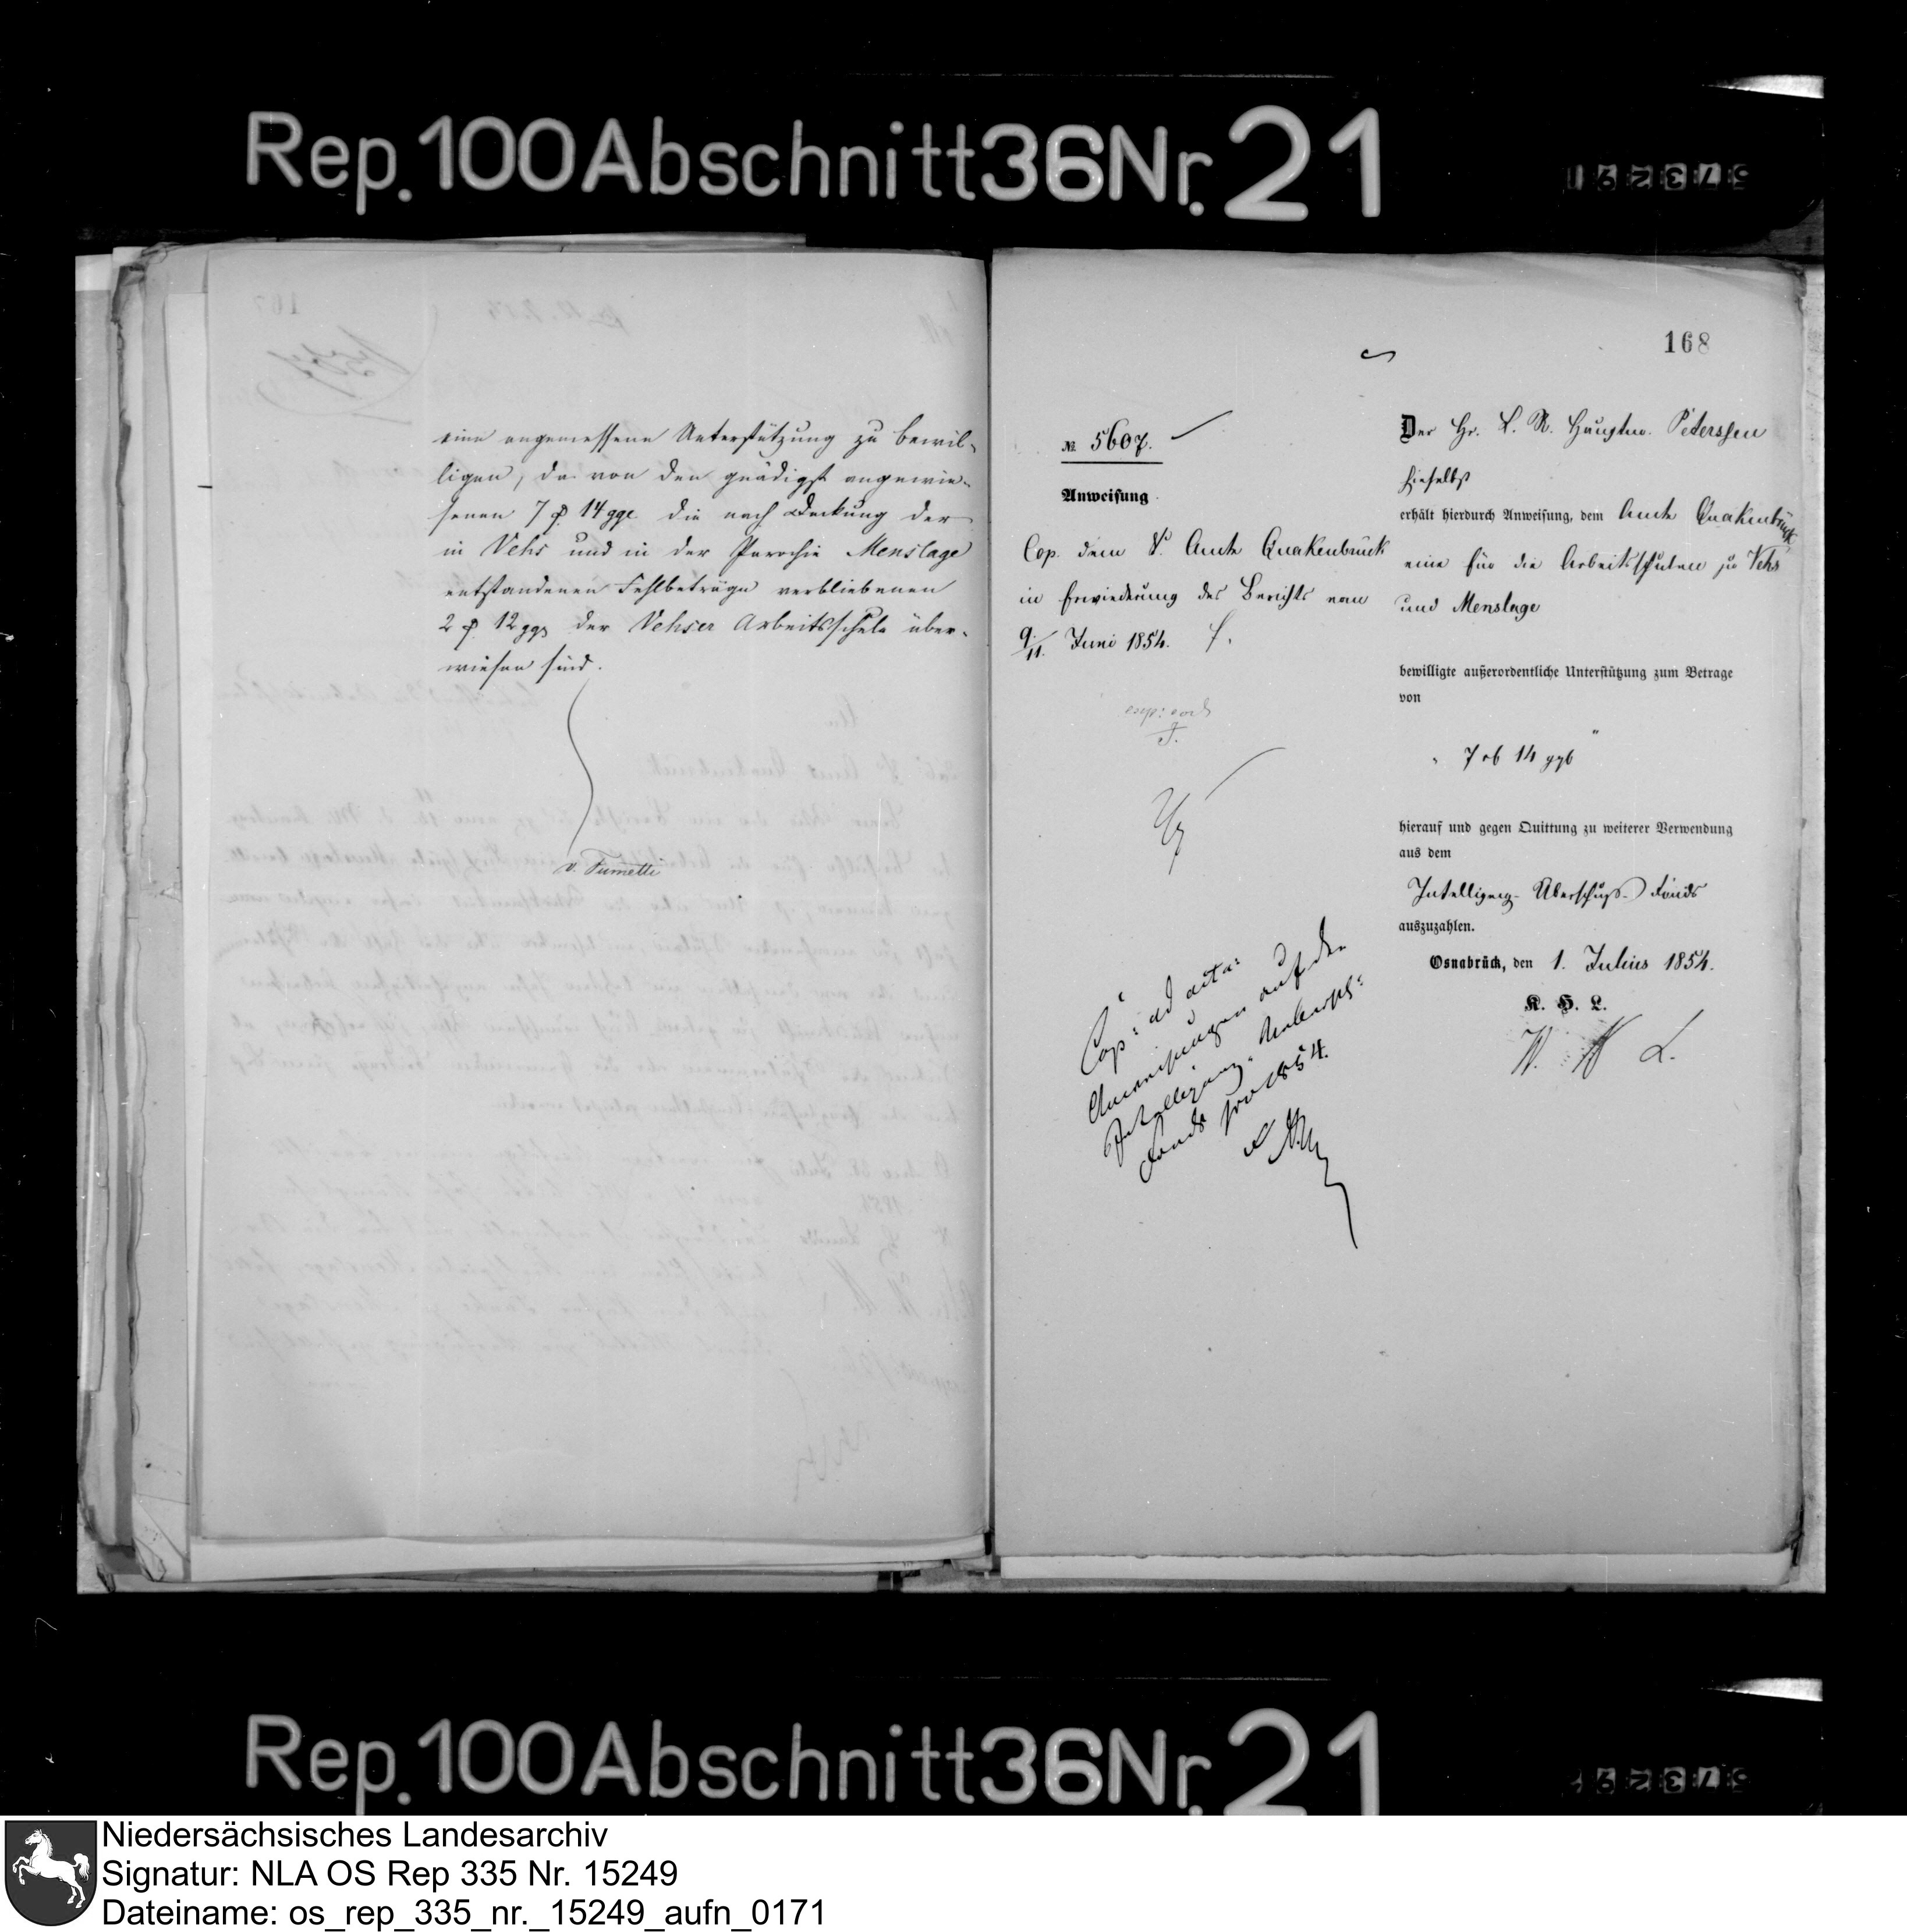 Rep. 100 Abschnitt 36 Nr. 21
eine angemessene Unterstützung zu bewil-
ligen, da von den gnädigst angewie-
senen 7 ₰ 14 gge. die nach Deckung der
in Vehs und in der Parochie Menslage
entstandenen Fehlbeträge verbliebenen
2 ₰ 12 ggr der Vehser Arbeitsschule über-
wiesen sind.
v. Tumetti
168
№ 5607.
Anweisung
Cop. dem K. Amte Quakenbrück
in Erwiederung des Berichts vom
9/11. Juni 1854.
Cop: ad acta:
Anweisungen auf den
Intelligenz-
Fonds pro 1854.
Der Hr. L. R. Hauptm. Peterssen
hieselbst
erhält hierdurch Anweisung, dem Amte Quakenbrück
eine für die Arbeitsschulen zu Vehs
und Menslage
bewilligte außerordentliche Unterstützung zum Betrage
von
7 ₰ 14 ggr
hierauf und gegen Quittung zu weiterer Verwendung
aus dem
Intelligenz-Überschuß-Fonds
auszuzahlen.
Osnabrück, den 1. Julius 1854.
K. H. L.
Rep. 100 Abschnitt 36 Nr. 21
Niedersächsisches Landesarchiv
Signatur: NLA OS Rep 335 Nr. 15249
Dateiname: os_rep_335_nr._15249_aufn_0171